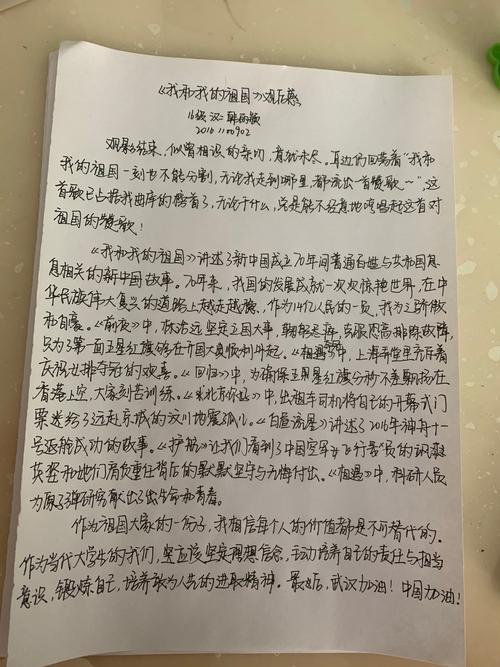 《我和我的祖国》观后感
16级 汉二 韩
2016110902
观影结束，似曾相识的亲切，意犹未尽。耳边仍回荡着“我和
我的祖国一刻也不能分割，无论我走到哪里，都流出一首赞歌~”，这
首歌已占据我曲库的榜首了，无论干什么，总是能不经意地哼唱起这首对
祖国的赞歌！
《我和我的祖国》讲述了新中国成立70年间普通百姓与共和国息
息相关的新中国故事。70年来，我国的发展成就一次次惊艳世界，在中
华民族伟大复兴的道路上越走越稳，作为14亿人民的一员，我为之骄傲
和自豪。《前夜》中，林治远坚定立国大事，克服恐高排除故障，
只为了第一面五星红旗能够在开国大典顺利升起。《相遇》中，上海弄堂里充斥着
庆祝女排夺冠的欢喜。《回归》中，为确保五星红旗分秒不差飘扬在
香港上空，大家刻苦训练。《北京你好》中，出租车司机将自己的开幕式门
票送给了远赴京城的汶川地震孤儿。《白昼流星》讲述了2016年神舟十一
号返航成功的故事。《护航》让我们看到了中国空军女飞行员的飒爽
英姿和她们肩负重任背后的默默坚守与无悔付出。《相遇》中，科研人员
为原子弹研究献出了生命和青春。
作为祖国大家的一份子，我相信每个人的价值都是不可替代的。
作为当代大学生的我们，更应该坚定理想信念，主动培养自己的责任与担当
意识，锻炼自己，培养敢为人先的进取精神。最后，武汉加油！中国加油！